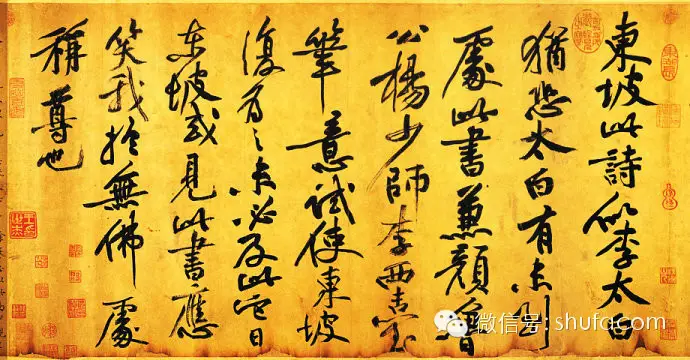 東坡此詩似李太白
猶恐太白有未到
處此書兼顏魯
公楊少師李西臺
筆意試使東坡
復為之未必及此它日
東坡或見此書應
笑我於無佛處
稱尊也
微信号: shufacom